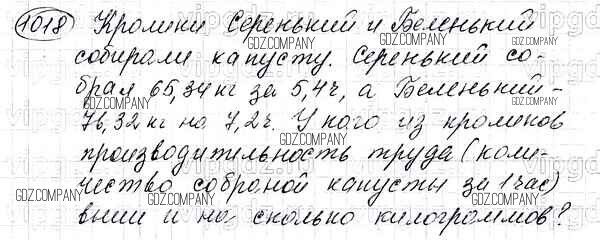 1018 Кролики Серенький и Беленький
собирали капусту. Серенький со-
брал 65,34 кг за 5,4ч, а Беленький -
76,32 кг на 7,2ч. У кого из кроликов
производительность труда (коли-
чество собраной капусты за 1 час)
выше и на сколько килограммов?
GDZ.COMPANY
GDZ.COMPANY
GDZ.COMPANY
GDZ.COMPANY
GDZ.COMPANY
GDZ.COMPANY
GDZ.COMPANY
GDZ.COMPANY
GDZ.COMPANY